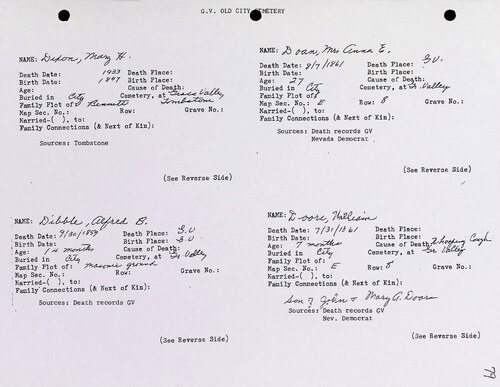 G.V. OLD CITY CEMETERY
NAME: Dixon, Mary H.
Death Date: 1933 Death Place:
Birth Date: 1847 Birth Place:
Age: Cause of Death:
Buried in City Cemetery, at Grass Valley
Family Plot of: Bennett Tombstone
Map Sec. No.: Row: Grave No.:
Married-( ), to:
Family Connections (& Next of Kin):
Sources: Tombstone
(See Reverse Side)
NAME: Doan, Mrs Anna E.
Death Date: 8/7/1861 Death Place: G.V.
Birth Date: Birth Place:
Age: 27 Cause of Death:
Buried in City Cemetery, at Gr. Valley
Family Plot of:
Map Sec. No.: E Row: 8 Grave No.:
Married-( ), to:
Family Connections (& Next of Kin):
Sources: Death records GV
Nevada Democrat
(See Reverse Side)
NAME: Dibble, Alfred B.
Death Date: 9/30/1859 Death Place: G.V
Birth Date: Birth Place: G.V
Age: 14 months Cause of Death:
Buried in City Cemetery, at Gr. Valley
Family Plot of: masonic ground
Map Sec. No.: Row: Grave No.:
Married-( ), to:
Family Connections (& Next of Kin):
Sources: Death records GV
(See Reverse Side)
NAME: Doors, William
Death Date: 7/31/1861 Death Place:
Birth Date: Birth Place:
Age: 7 months Cause of Death: Whooping Cough
Buried in City Cemetery, at Gr. Valley
Family Plot of:
Map Sec. No.: E Row: 8 Grave No.:
Married-( ), to:
Family Connections (& Next of Kin):
Son of John & Mary A. Doors
Sources: Death records GV
Nev. Democrat
(See Reverse Side)
79